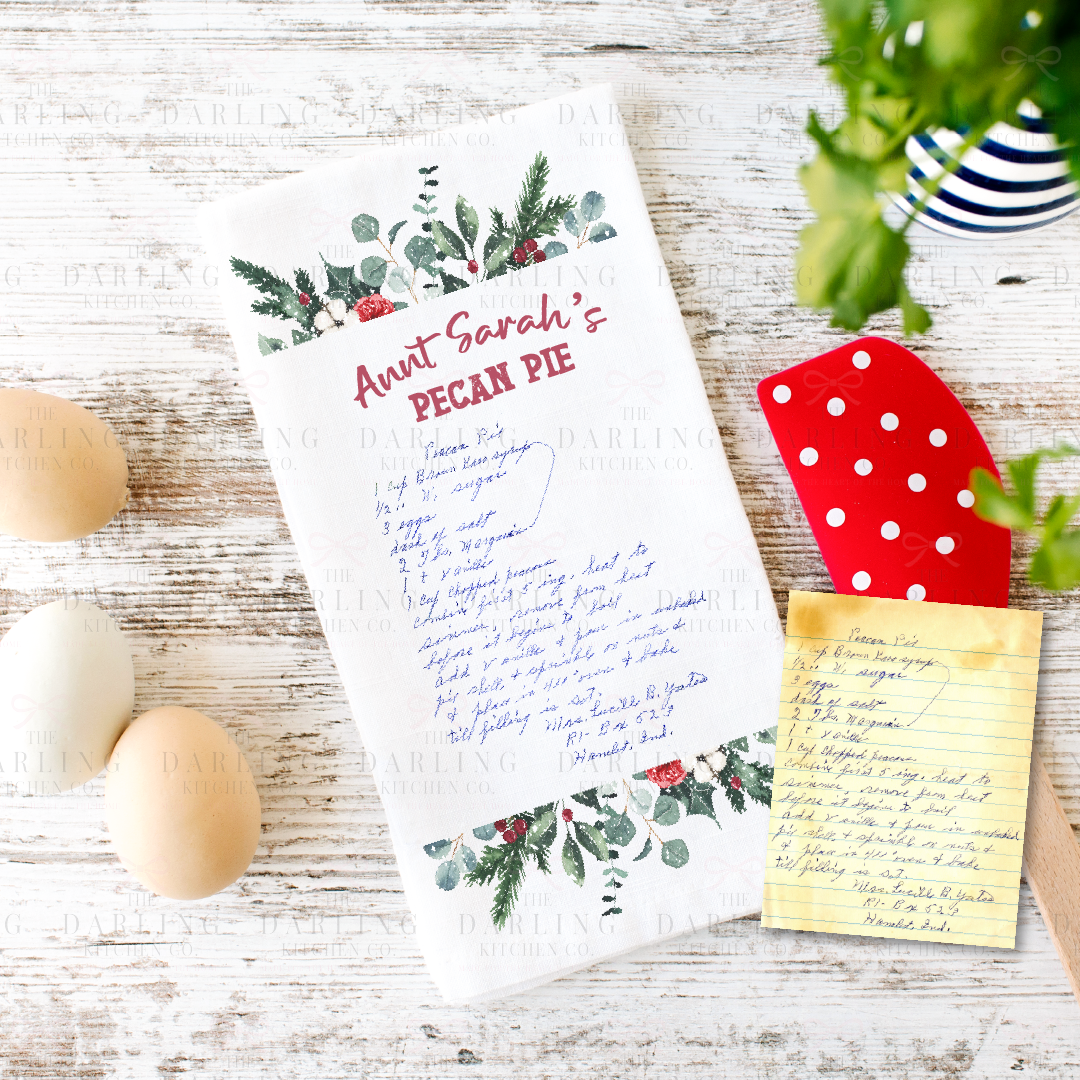 Aunt Sarah's
PECAN PIE
Pecan Pie
1 cup Brown Karo syrup
1/2 " W. sugar
3 eggs
dash of salt
2 Tbs. Margarine
1 t vanilla
1 cup chopped pecans
combine first 5 ing. heat to
simmer, remove from heat
before it begins to boil
add vanilla & pour in unbaked
pie shell, & sprinkle on nuts &
& place in 400° oven & bake
till filling is set.
Mrs. Lucille B. Yates
R1- Box 523
Hamlet, Ind.
Pecan Pie
1 cup Brown Karo syrup
1/2 " W. sugar
3 eggs
dash of salt
2 Tbs. Margarine
1 t vanilla
1 cup chopped pecans
combine first 5 ing. heat to
simmer, remove from heat
before it begins to boil
add vanilla & pour in unbaked
pie shell, & sprinkle on nuts &
& place in 400° oven & bake
till filling is set.
Mrs. Lucille B. Yates
R1- Box 523
Hamlet, Ind.
THE
DARLING
KITCHEN CO.